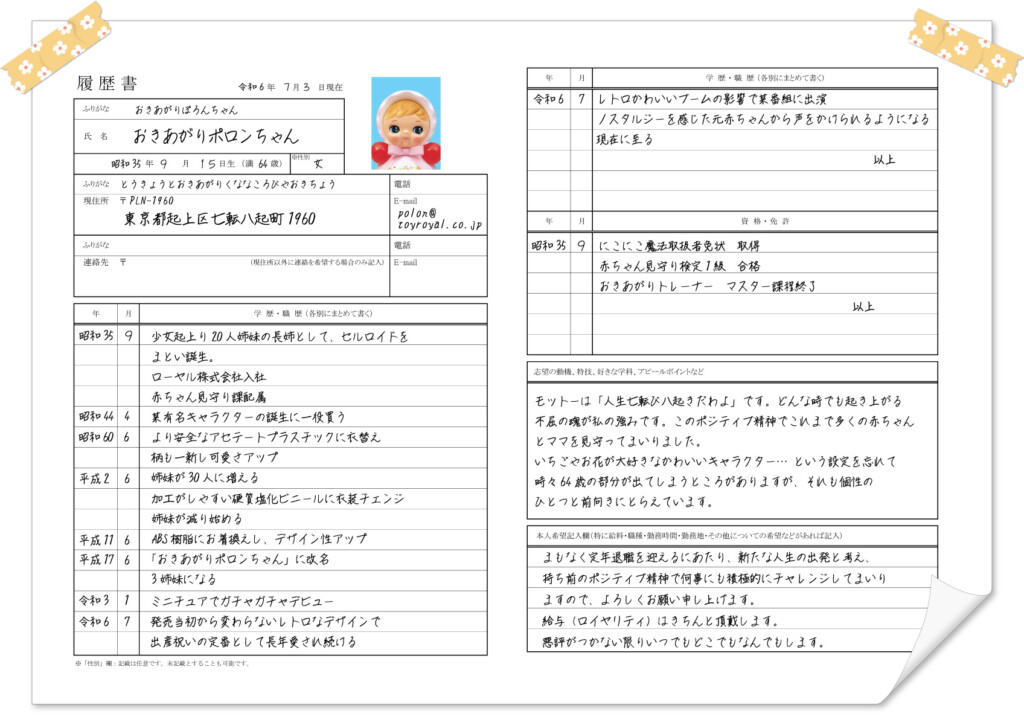 履歴書
令和6年 7月3 日現在
ふりがな おきあがりぽろんちゃん
氏 名 おきあがりポロンちゃん
昭和35年 9 月 15日生（満 64歳）
※性別 女
ふりがな とうきょうとおきあがりくななころびやおきちょう
現住所 〒PLN-1960
東京都起上区七転八起町1960
電話
E-mail
polon@
toyroyal.co.jp
ふりがな
連絡先 〒 （現住所以外に連絡を希望する場合のみ記入）
電話
E-mail
年 月 学 歴・職 歴（各別にまとめて書く）
昭和35 9 少女起上り20人姉妹の長姉として、セルロイドを
まとい誕生。
ローヤル株式会社入社
赤ちゃん見守り課配属
昭和44 4 某有名キャラクターの誕生に一役買う
昭和60 6 より安全なアセテートプラスチックに衣替え
柄も一新し可愛さアップ
平成2 6 姉妹が30人に増える
加工がしやすい硬質塩化ビニールに衣装チェンジ
姉妹が減り始める
平成11 6 ABS樹脂にお着換えし、デザイン性アップ
平成17 6 「おきあがりポロンちゃん」に改名
3姉妹になる
令和3 1 ミニチュアでガチャガチャデビュー
令和6 7 発売当初から変わらないレトロなデザインで
出産祝いの定番として長年愛され続ける
※「性別」欄：記載は任意です。未記載とすることも可能です。
年 月 学 歴・職 歴（各別にまとめて書く）
令和6 7 レトロかわいいブームの影響で某番組に出演
ノスタルジーを感じた元赤ちゃんから声をかけられるようになる
現在に至る
以上
年 月 資 格・免 許
昭和35 9 にこにこ魔法取扱者免状 取得
赤ちゃん見守り検定1級 合格
おきあがりトレーナー マスター課程終了
以上
志望の動機、特技、好きな学科、アピールポイントなど
モットーは「人生七転び八起きだわよ」です。どんな時でも起き上がる
不屈の魂が私の強みです。このポジティブ精神でこれまで多くの赤ちゃん
とママを見守ってまいりました。
いちごやお花が大好きなかわいいキャラクター… という設定を忘れて
時々64歳の部分が出てしまうところがありますが、それも個性の
ひとつと前向きにとらえています。
本人希望記入欄（特に給料・職種・勤務時間・勤務地・その他についての希望などがあれば記入）
まもなく定年退職を迎えるにあたり、新たな人生の出発と考え、
持ち前のポジティブ精神で何事にも積極的にチャレンジしてまいり
ますので、よろしくお願い申し上げます。
給与（ロイヤリティ）はきちんと頂戴します。
悪評がつかない限りいつでもどこでもなんでもします。